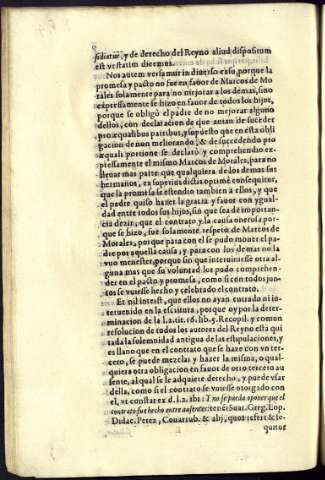 sidiatur, y de derecho del Reyno aliud dispositum
est vt statim dicemus.
Nos autem versamur in diuerso casu, porque la
promesa y pacto no fue en fauor de Marcos de Mo
rales solamente para no mejorar a los demas, sino
expresamente se hizo en fauor de todos los hijos,
porque se obligò el padre de no mejorar alguno
dellos, con declaracion de que auian de suceder
pro æqualibus partibus, y supuesto que en esta obli
gacion de non meliorando, & de succedendo pro
æquali portione se declarò y comprehendio ex-
presamente el mismo Marcos de Morales, para no
lleuar mas parte que qualquiera de los demas sus
hermanos, ex supra dictis optimè consequitur,
que la promesa se estendio tambien a ellos, y que
el padre quiso hazer la gracia y fauor con ygual
dad entre todos sus hijos, sin que sea de importan
cia dezir, que el contrato y la causa onerosa por-
que se hizo, fue solamente respeto de Marcos de
Morales, porque para con el se pudo mouer el pa-
dre por aquella causa, y para con los demas no la
vuo menester, porque sin que interuiniesse otra al
guna mas que su voluntad los pudo comprehen-
der en el pacto y promesa, como si con todos jun-
tos se vuiesse hecho y celebrado el contrato.
Et nil interest, que ellos no ayan entrado ni in-
teruenido en la escritura, porque oy por la deter-
minacion de la l.2.tit.16.lib.5.Recopil. y comun
resolucion de todos los autores del Reyno està qui
tada la solenidad antigua de las estipulaciones, y
es llano que en el contrato que se haze con vn ter-
cero, se puede mezclar y hazer la misma, o qual-
quiera otra obligacion en fauor de otro tercero au
sente, al qual se le adquiere derecho, y puede vsar
della, como si el contrato se vuiesse otorgado con
el, vt constat ex d.l.2. ibi: Y no se pueda oponer que el
contrato fue hecho entre ausentes: tenent Suar. Greg. Lop.
Didac. Perez, Couarrub. & alij, quos refert & se-
quitur